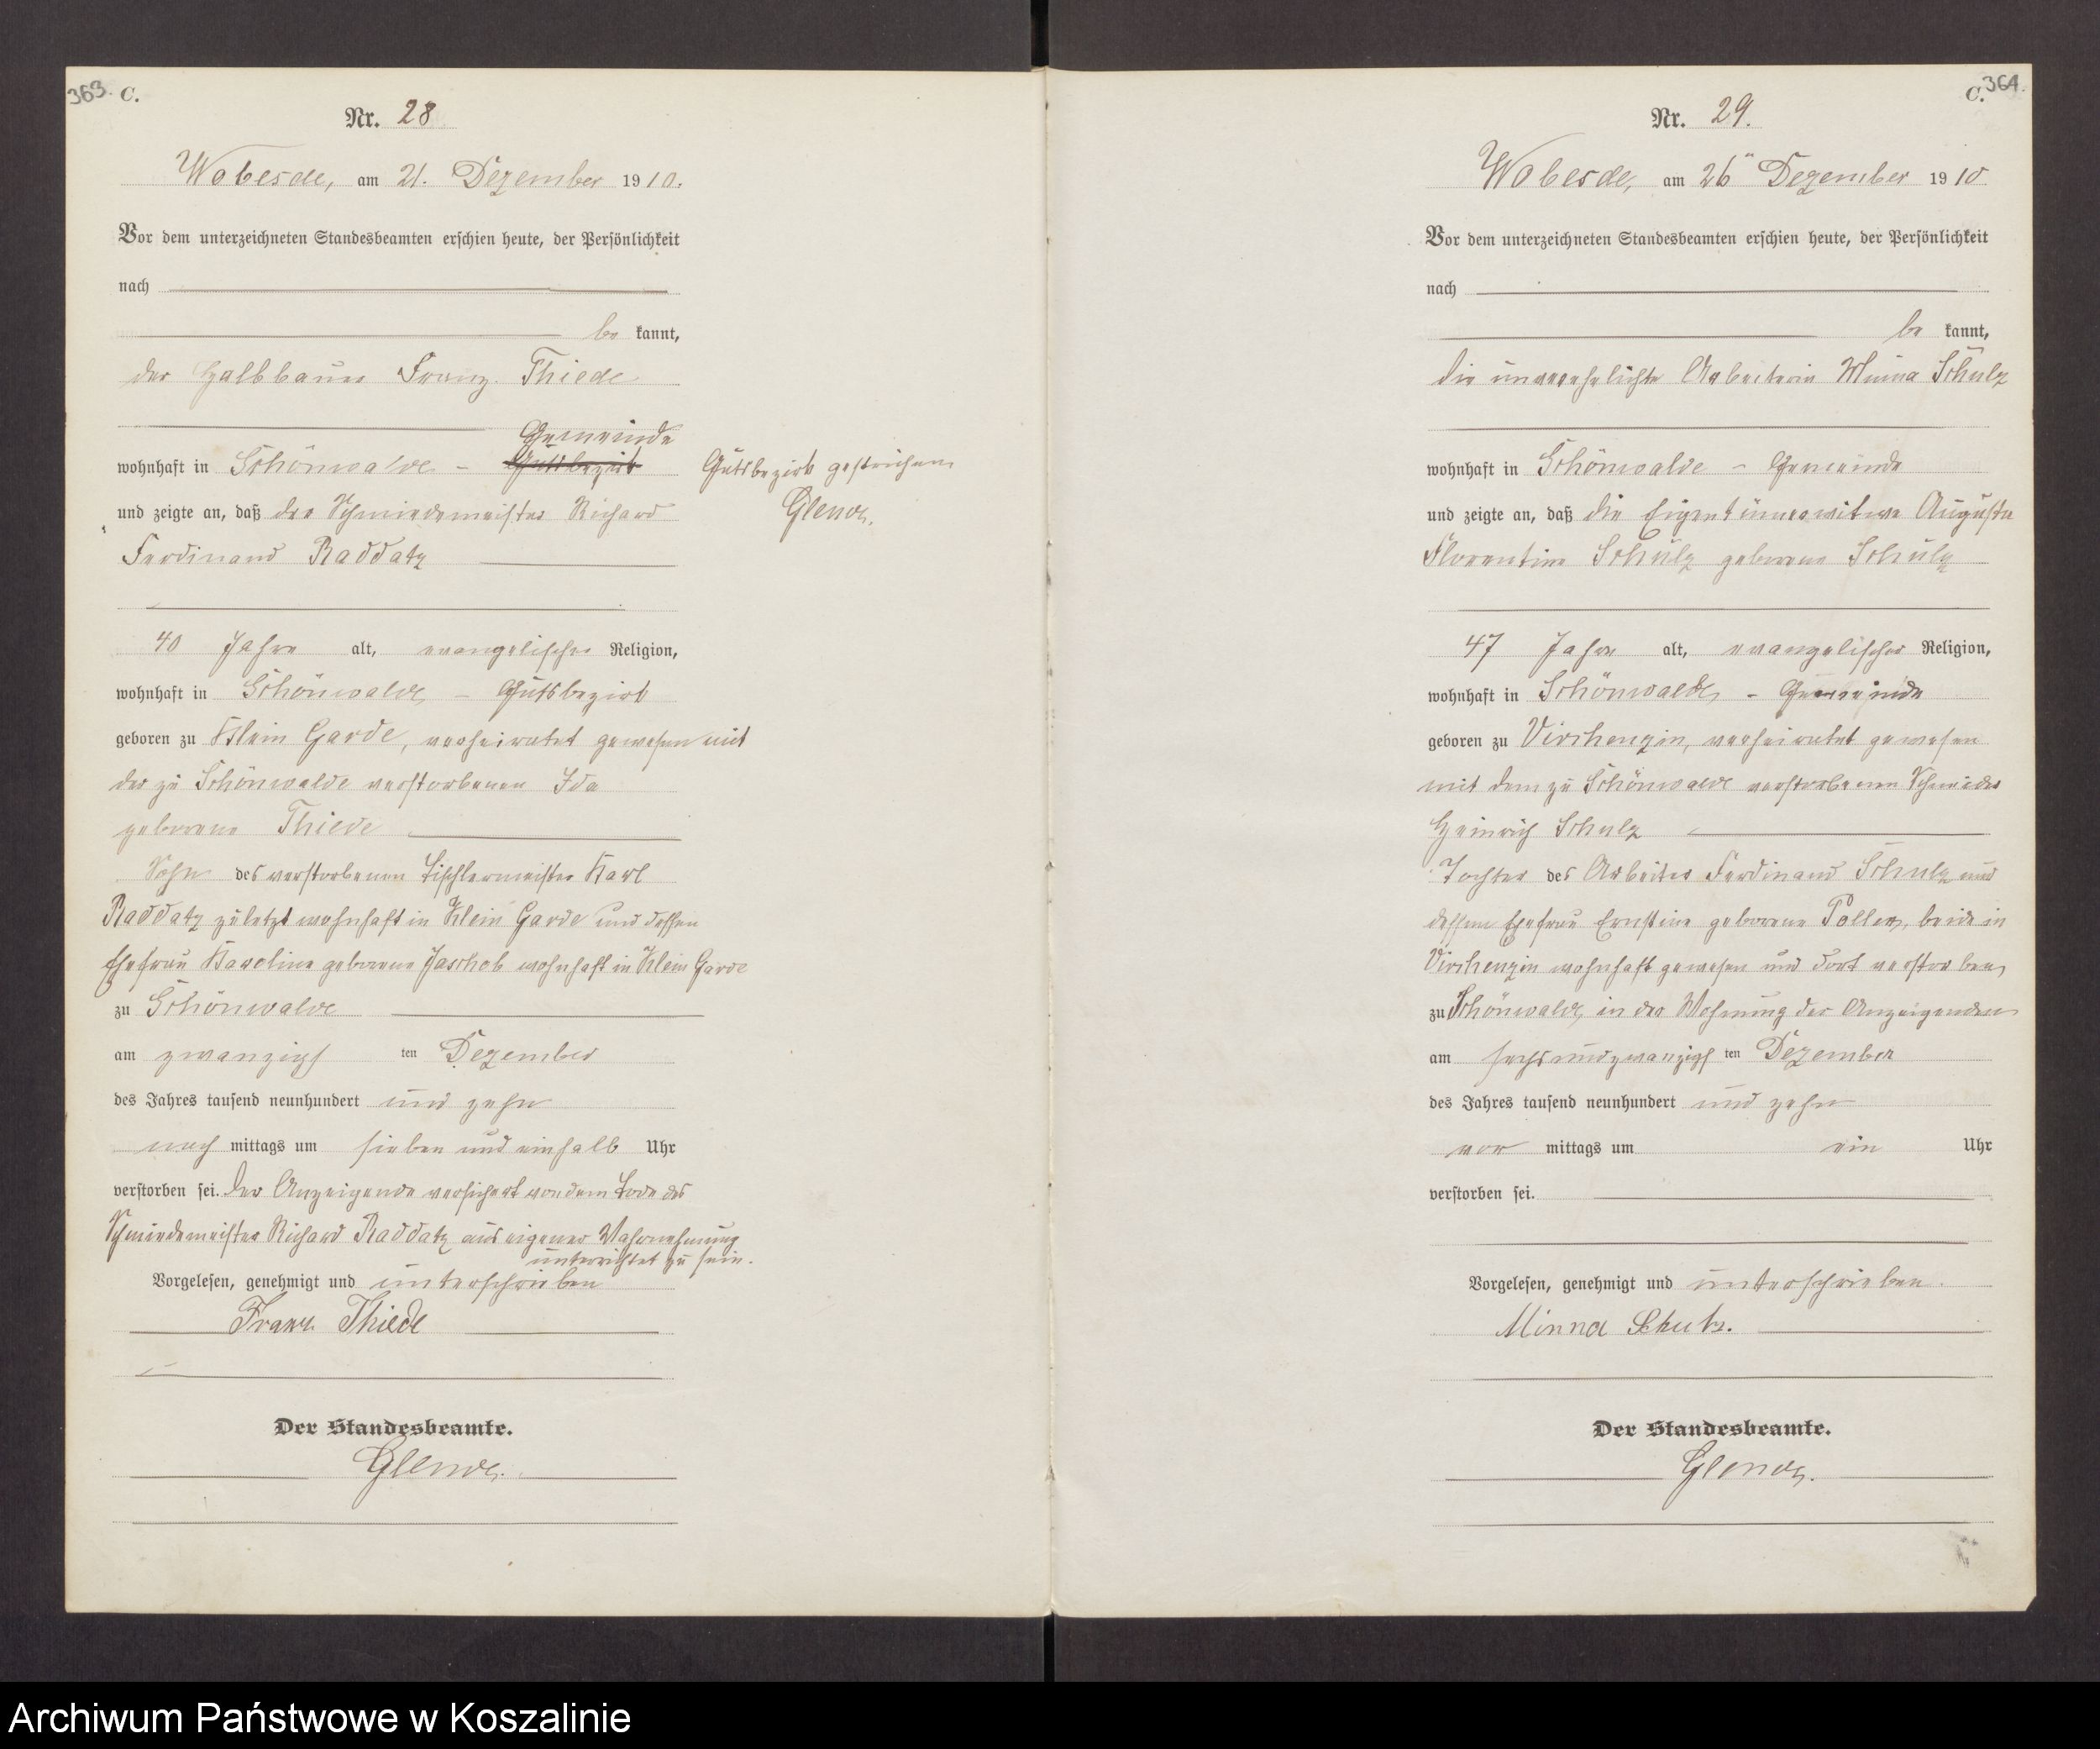 363. C.
Nr. 28
Wobesde, am 21. Dezember 1910.
Vor dem unterzeichneten Standesbeamten erschien heute, der Persönlichkeit
nach
be kannt,
der Halbbauer Franz Thiede
Gemeinde
wohnhaft in Schönwalde - Gutsbezirk Gutsbezirk gestrichen
und zeigte an, daß der Schmiedemeister Richard
Ferdinand Raddatz
40 Jahre alt, evangelischer Religion,
wohnhaft in Schönwalde - Gutsbezirk
geboren zu Klein Garde, verheiratet gewesen mit
der zu Schönwalde verstorbenen Ida
geborene Thiede
Sohn des verstorbenen Tischlermeister Karl
Raddatz zuletzt wohnhaft in Klein Garde und dessen
Ehefrau Karoline geborene wohnhaft in Klein Garde
zu Schönwalde
am zwanzigs ten Dezember
des Jahres tausend neunhundert und zehn
nach mittags um sieben und einhalb Uhr
verstorben sei. Der Anzeigende versichert von dem Tode des
Schmiedemeister Richard Raddatz aus eigener Wahrnehmung
unterrichtet zu sein.
Vorgelesen, genehmigt und unterschrieben
Franz Thiede
Der Standesbeamte.
C. 364.
Nr. 29.
Wobesde, am 26ᵗᵉⁿ Dezember 1910
Vor dem unterzeichneten Standesbeamten erschien heute, der Persönlichkeit
nach
be kannt,
die unverehelichte Arbeiterin Minna Schulz
wohnhaft in Schönwalde - Gemeinde
und zeigte an, daß die Eigentümerwitwe Auguste
Florentine Schulz geborene Schulz
47 Jahre alt, evangelischer Religion,
wohnhaft in Schönwalde - Gemeinde
geboren zu Virchenzin, verheiratet gewesen
mit dem zu Schönwalde verstorbenen Schmiedes
Heinrich Schulz
Tochter des Arbeiter Ferdinand Schulz und
dessen Ehefrau Ernstine geborene beide in
Virchenzin wohnhaft gewesen und dort verstorben
zu Schönwalde, in der Wohnung der Anzeigenden
am sechsundzwanzigs ten Dezember
des Jahres tausend neunhundert und zehn
vor mittags um ein Uhr
verstorben sei.
Vorgelesen, genehmigt und unterschrieben.
Minna Schulz.
Der Standesbeamte.
Archiwum Państwowe w Koszalinie